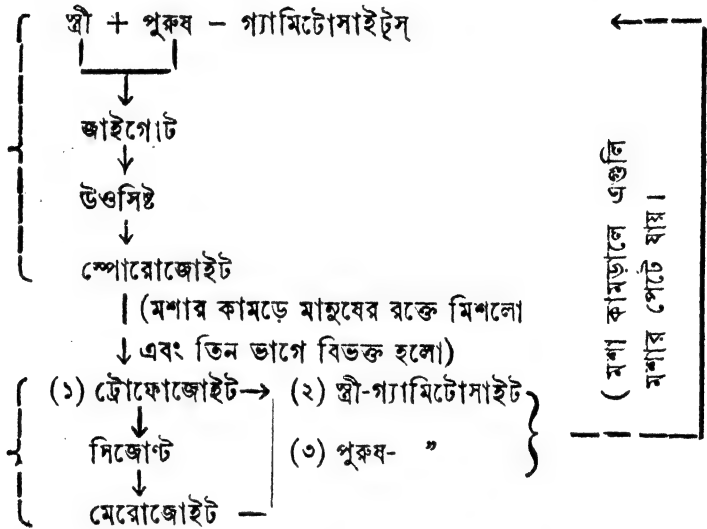 স্ত্রী + পুরুষ - গ্যামিটোসাইট্স্
জাইগোট
উওসিষ্ট
স্পোরোজোইট
(মশার কামড়ে মানুষের রক্তে মিশলো
এবং তিন ভাগে বিভক্ত হলো)
(১) ট্রোফোজোইট → (২) স্ত্রী-গ্যামিটোসাইট
সিজোণ্ট (৩) পুরুষ- ”
মেরোজোইট
(মশা কামড়ালে এগুলি
মশার পেটে যায়।